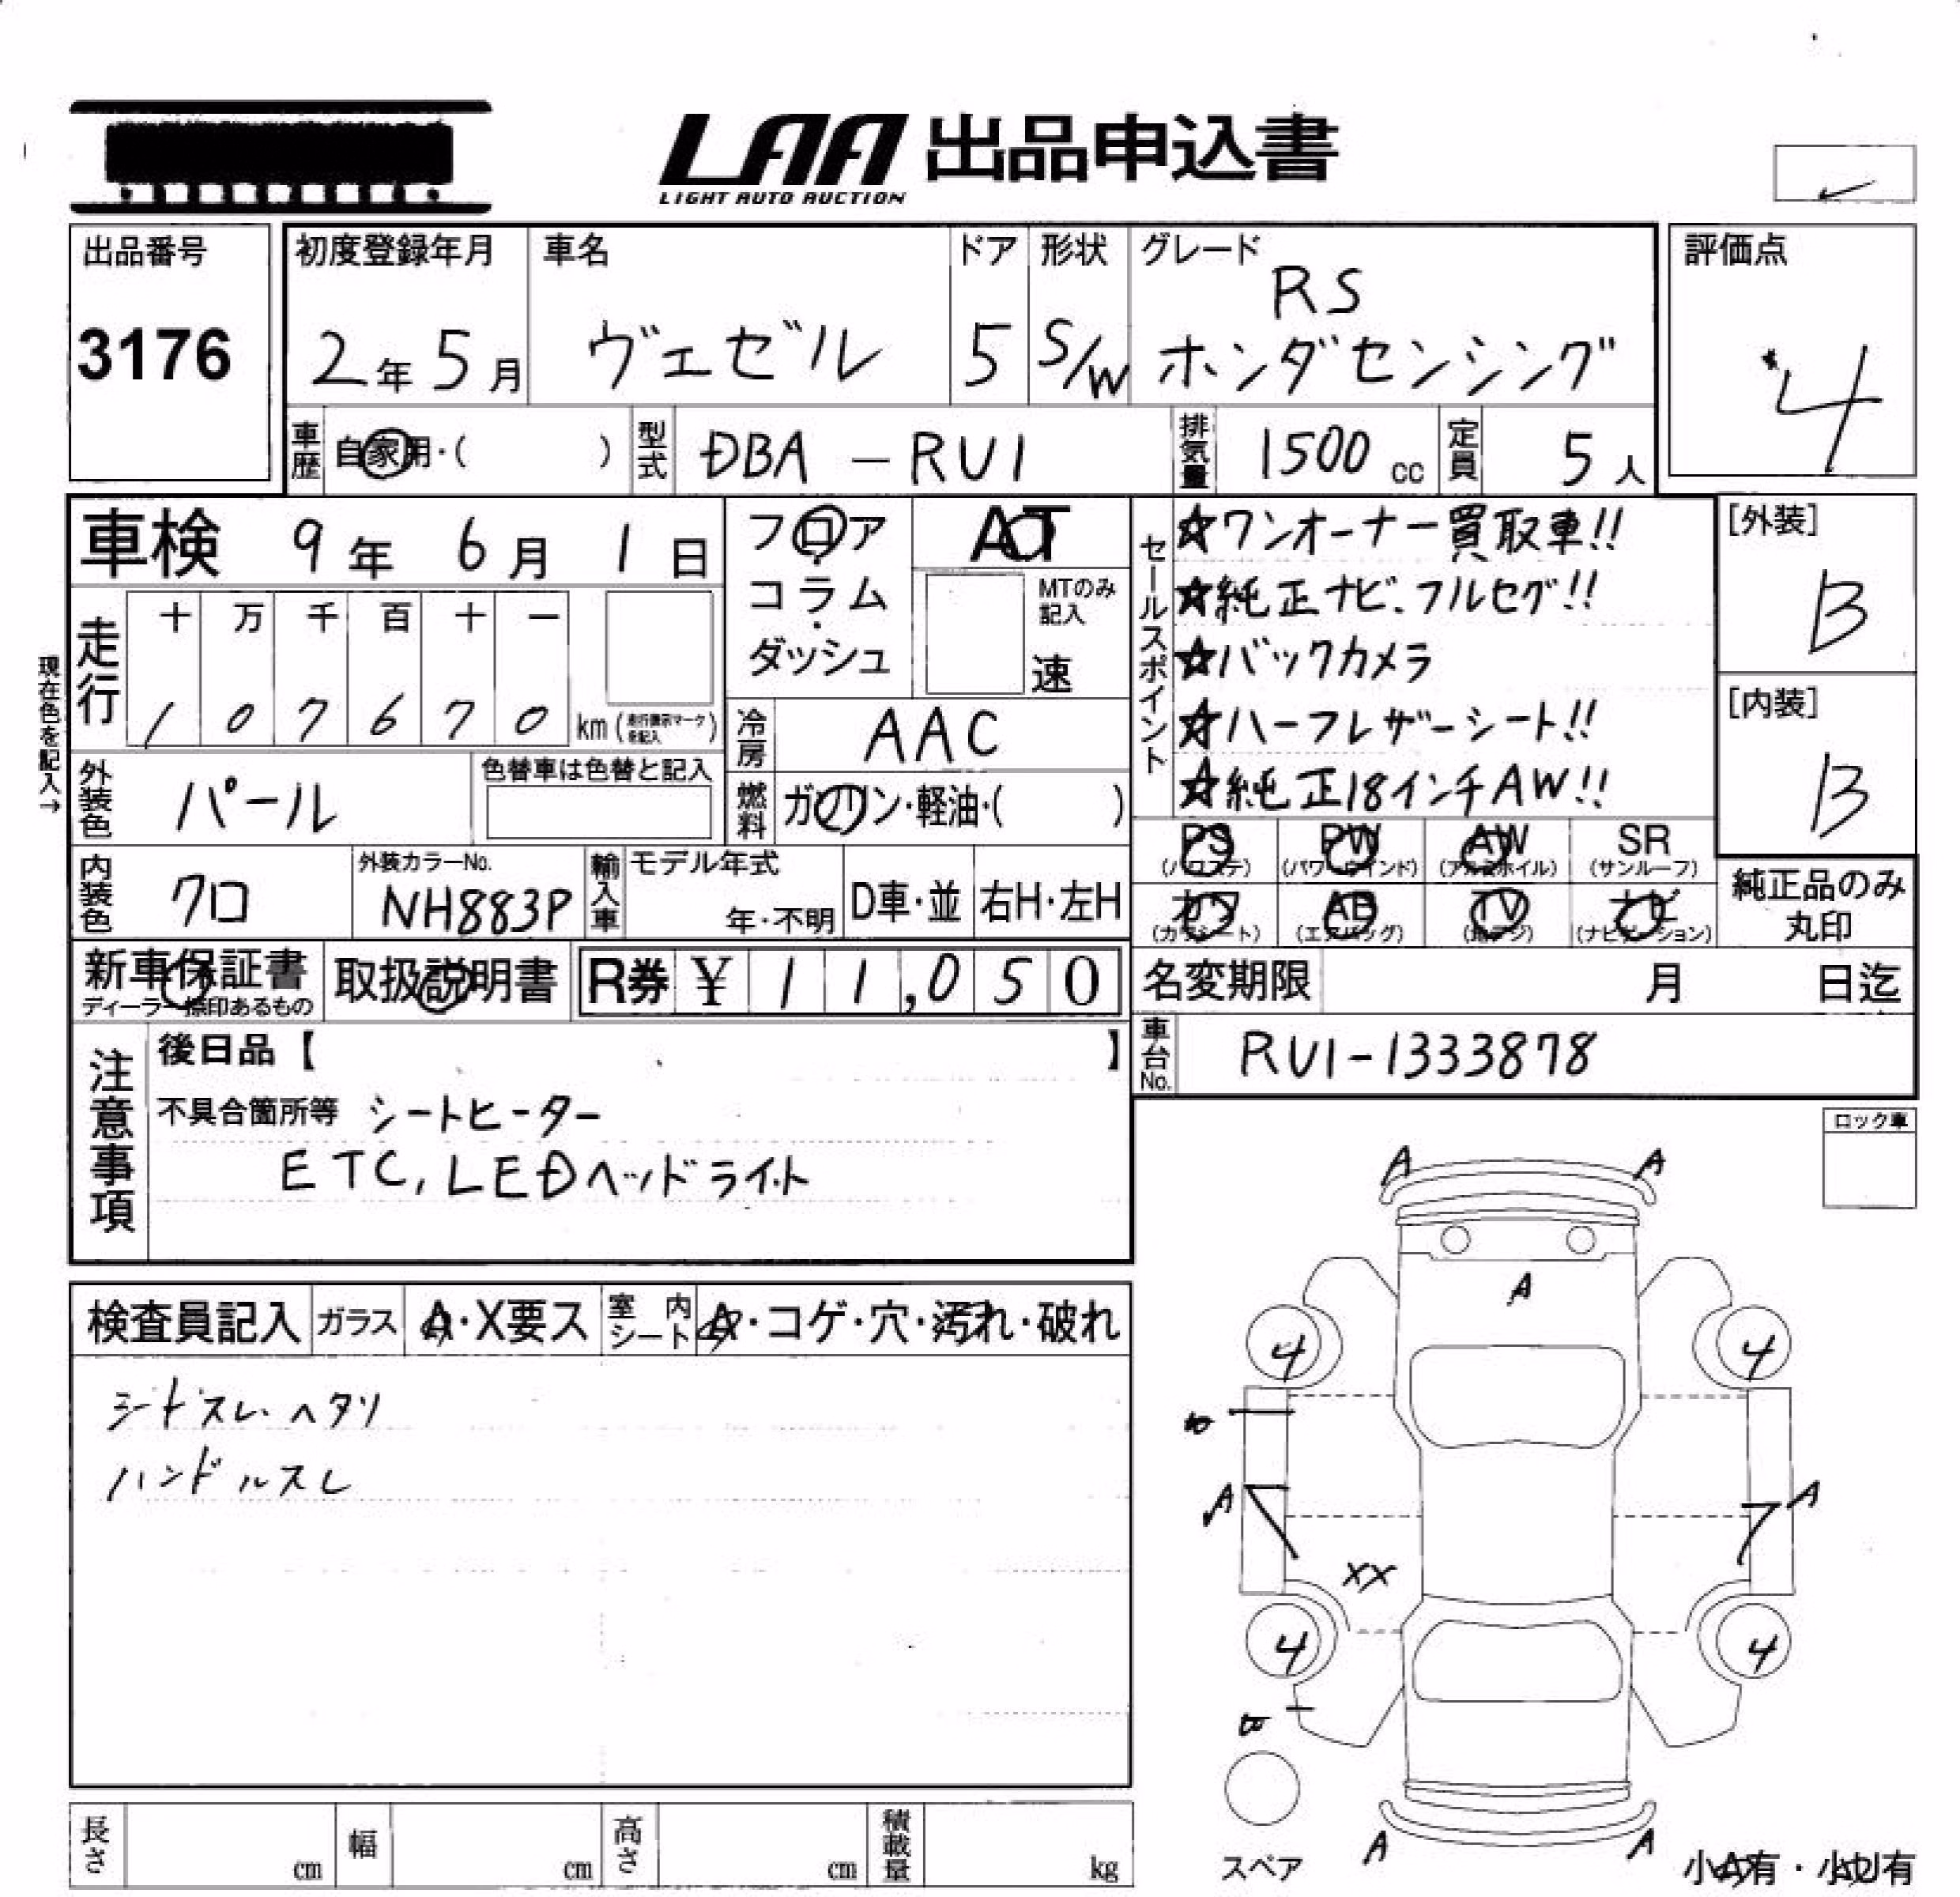 LAA 出品申込書
LIGHT AUTO AUCTION
出品番号
3176
初度登録年月
2年5月
車名
ヴェゼル
ドア
5
形状
S/W
グレード
RS
ホンダセンシング
評価点
4
車歴
自家用・( )
型式
DBA-RU1
排気量
1500cc
定員
5人
車検 9年6月1日
フロア・コラム・ダッシュ
AT
MTのみ記入
速
セールスポイント
☆ワンオーナー買取車!!
☆純正ナビ、フルセグ!!
☆バックカメラ
☆ハーフレザーシート!!
☆純正18インチAW!!
[外装]
B
[内装]
B
現在色を記入→
走行
十 万 千 百 十 一
1 0 7 6 7 0 km
冷房
AAC
外装色
パール
色替車は色替と記入
燃料
ガソリン・軽油・( )
PS PW AW SR
(パワステ) (パワーウインド) (アルミホイル) (サンルーフ)
カワ AB TV ナビ
(カワシート) (エアバッグ) (地デジ) (ナビゲーション)
純正品のみ丸印
内装色
クロ
外装カラーNo.
NH883P
輸入車
モデル年式
年・不明
D車・並
右H・左H
新車保証書
取扱説明書
R券 ¥11,050
名変期限 月 日迄
車台No.
RU1-1333878
注意事項
後日品【 】
不具合箇所等 シートヒーター
ETC, LEDヘッドライト
ロック車
A A
A
4 4
A A
XX
4 4
A A
検査員記入
ガラス
A・X要ス
室内シート
A・コゲ・穴・汚れ・破れ
シートスレ・ヘタリ
ハンドルスレ
長さ cm
幅 cm
高さ cm
積載量 kg
スペア
小A有・小U有